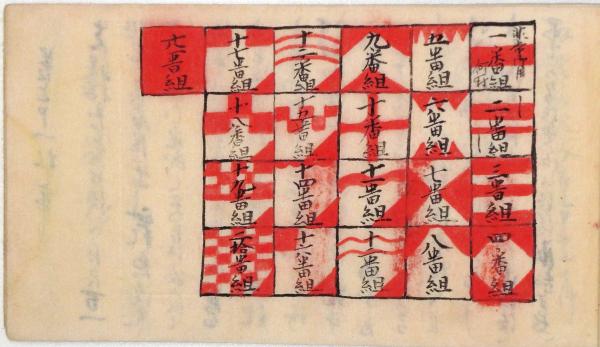 一番組
何村
二番組
三番組
四番組
五番組
六番組
七番組
八番組
九番組
十番組
十一番組
十二番組
十三番組
十五番組
十四番組
十六番組
十七番組
十八番組
十九番組
二拾番組
番組